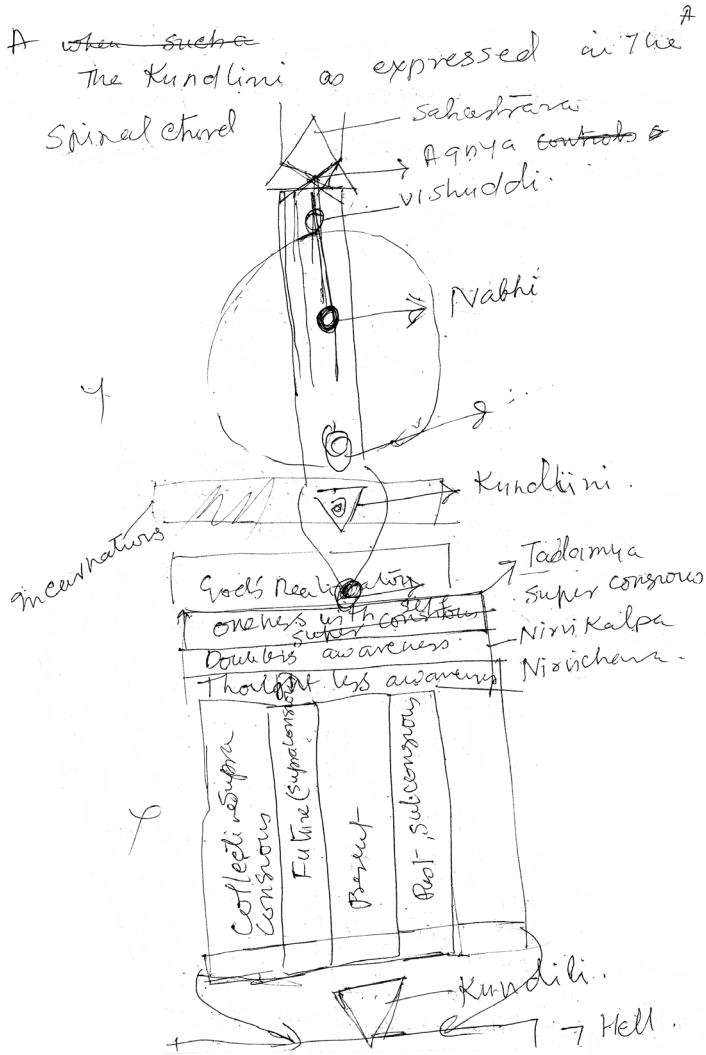 A
A when such a
The Kundlini as expressed in the
Spinal chord
Sahastrara
Agnya controls
Vishuddi.
Nabhi
Kundlini.
incarnations
God's Realization
Tadatmya
super consious
oneness with self
super consious
Nirvikalpa
Doubless awareness
Nirvichara.
Thought less awareness
Collective Supra
Consious
Future (supraconsious)
Present
Past, subconsious
Kundili.
Hell.